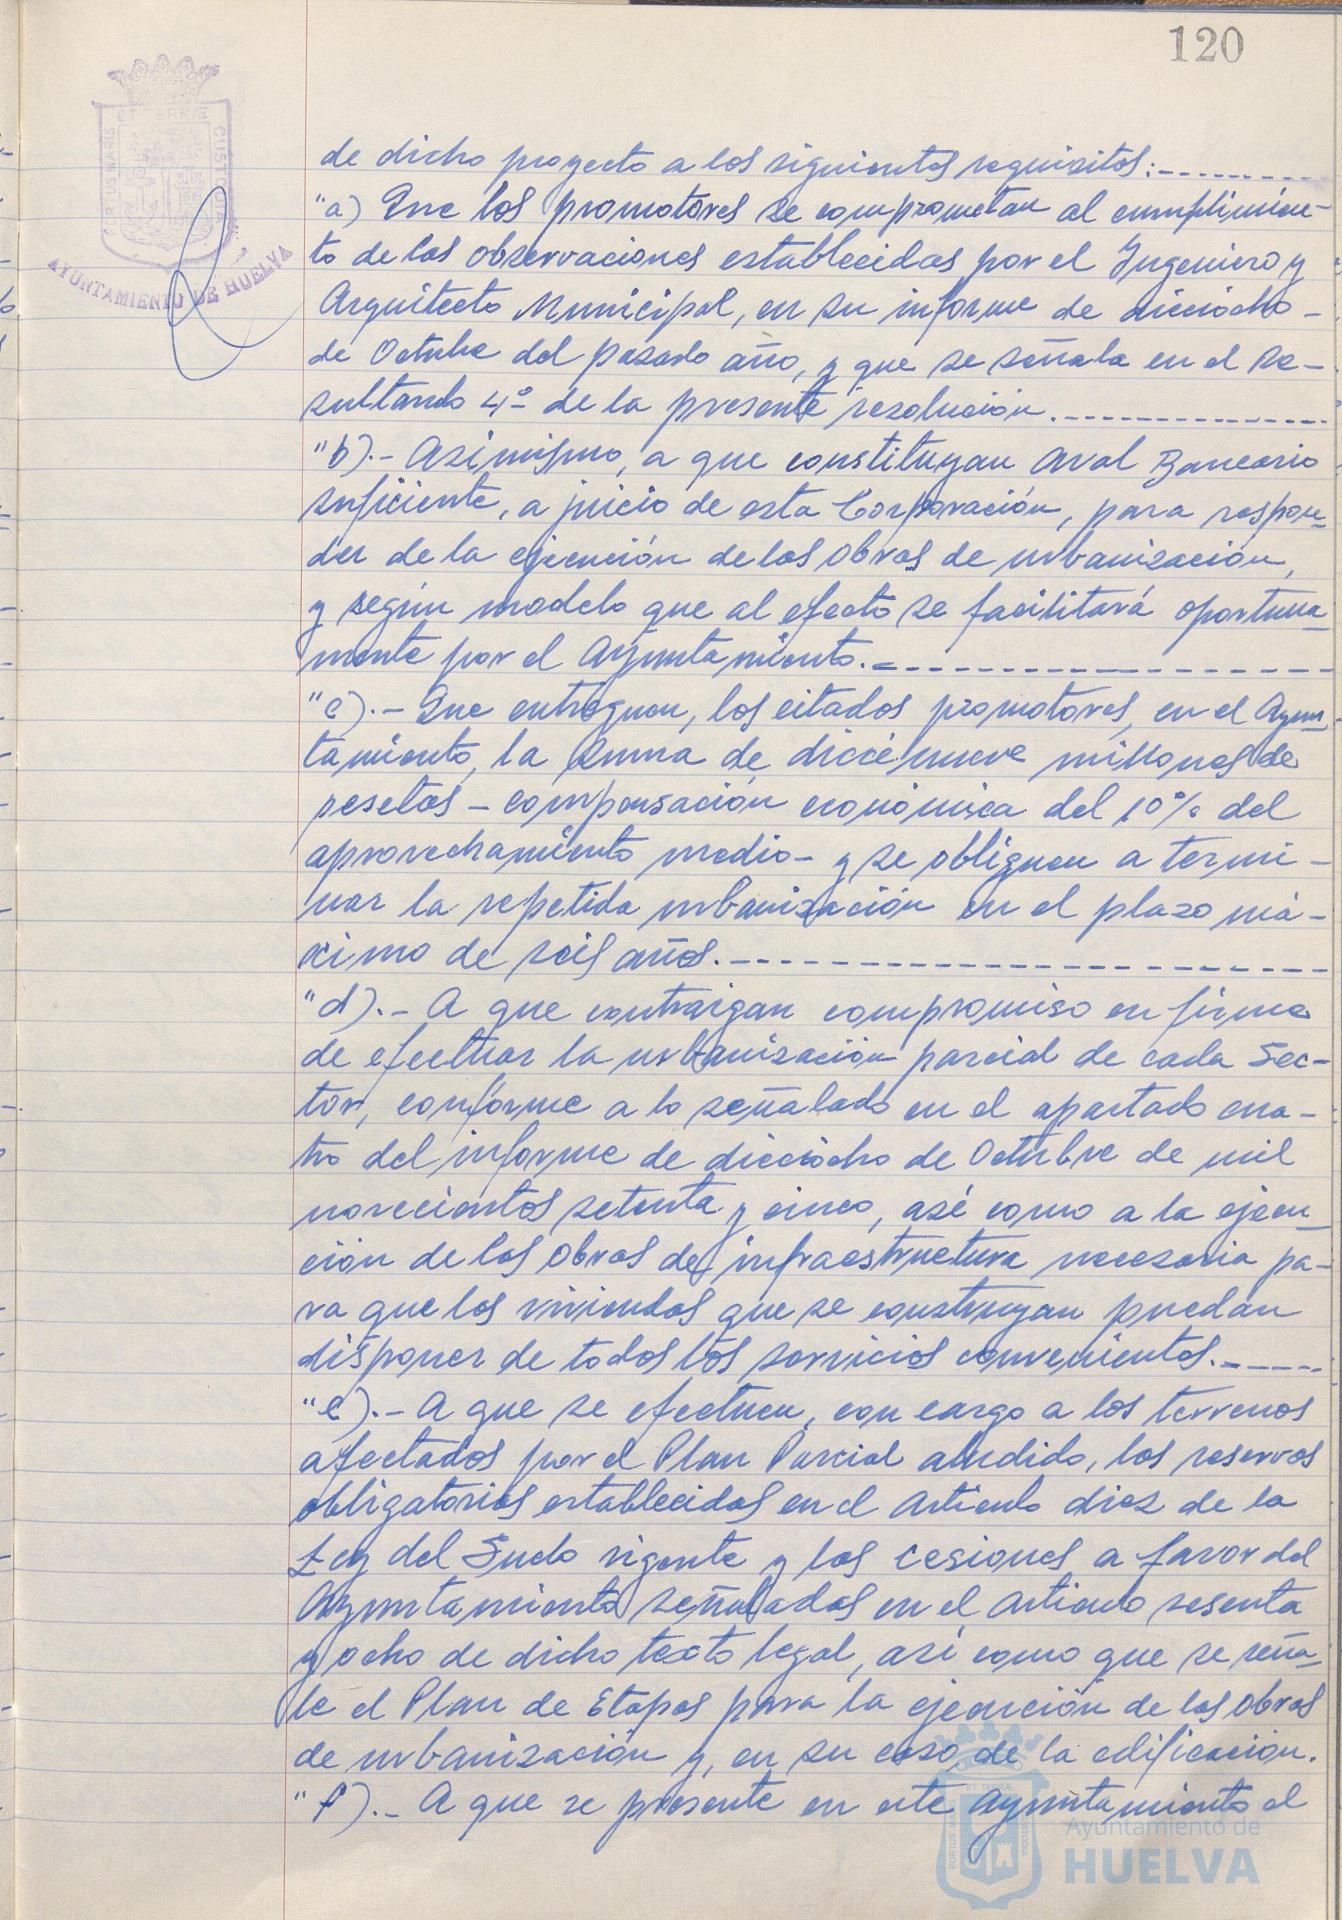 120
ET TERRÆ
PORTUS MARIS
CUSTODIA
AYUNTAMIENTO DE HUELVA
de dicho proyecto a los siguientes requisitos:
"a) Que los promotores se comprometan al cumplimien-
to de las observaciones establecidas por el Ingeniero y
Arquitecto Municipal, en su informe de dieciocho -
de Octubre del pasado año, y que se señala en el Re-
sultando 4º de la presente resolución.
"b).- Asimismo, a que constituyan Aval Bancario
suficiente, a juicio de esta Corporación, para respon-
der de la ejecución de las obras de urbanización,
y según modelo que al efecto se facilitará oportuna-
mente por el Ayuntamiento.
"c).- Que entreguen, los citados promotores, en el Ayun-
tamiento, la suma de diecinueve millones de
pesetas - compensación económica del 10% del
aprovechamiento medio - y se obliguen a termi-
nar la repetida urbanización en el plazo má-
ximo de seis años.
"d).- A que contraigan compromiso en firme
de efectuar la urbanización parcial de cada Sec-
tor, conforme a lo señalado en el apartado cua-
tro del informe de dieciocho de Octubre de mil
novecientos setenta y cinco, asé como a la ejecu-
ción de las obras de infraestructura necesaria pa-
ra que las viviendas que se construyan puedan
disponer de todos los servicios convenientes.
"e).- A que se efectuen, con cargo a los terrenos
afectados por el Plan Parcial aludido, las reservas
obligatorias establecidas en el Artículo diez de la
Ley del Suelo vigente y las cesiones a favor del
Ayuntamiento señaladas en el Artículo sesenta
y ocho de dicho texto legal, así como que se seña-
le el Plan de Etapas para la ejecución de las obras
de urbanización y, en su caso, de la edificación.
"f).- A que se presente en este Ayuntamiento el
ET TERRÆ
PORTUS MARIS
CUSTODIA
Ayuntamiento de
HUELVA